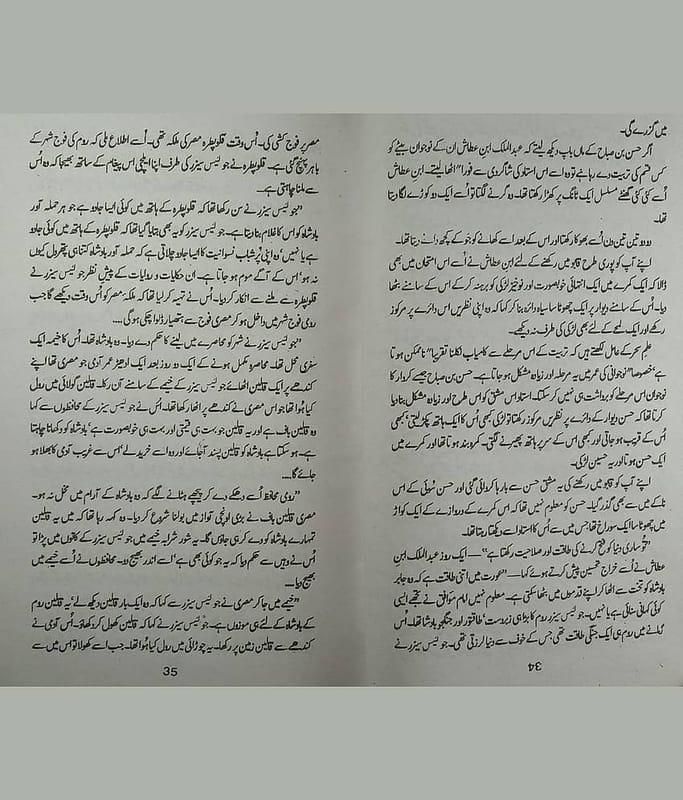 میں گزرے گی۔
اگر حسن بن صباح کے ماں باپ دیکھ لیتے کہ عبدالملک ابن عطاش ان کے نوجوان بیٹے کو
کس قسم کی تربیت دے رہا ہے تو وہ اسے اس استاد کی شاگردی سے فوراً اٹھا لیتے۔ ابن عطاش
اُسے کئی کئی گھنٹے مسلسل ایک ٹانگ پر کھڑا رکھتا تھا۔ وہ گرنے لگتا تو اُسے ایک دو کوڑے لگا دیتا
تھا۔
دو دو تین تین دن اُسے بھوکا رکھتا اور اس کے بعد اسے کھانے کو جَو کے کچھ دانے دیتا تھا۔
اپنے آپ کو پوری طرح قابو میں رکھنے کے لئے ابن عطاش نے اُسے اس امتحان میں بھی
ڈالا کہ ایک کمرے میں ایک انتہائی خوبصورت اور نوخیز لڑکی کو برہنہ کر کے اس کے سامنے بٹھا
دیا۔ اُس کے سامنے دیوار پر ایک چھوٹا سا سیاہ دائرہ بنا کر کہا کہ وہ اپنی نظریں اس دائرے پر مرکوز
رکھے اور ایک لمحے کے لئے بھی لڑکی کی طرف نہ دیکھے۔
علم سحر کے عامل لکھتے ہیں کہ تربیت کے اس مرحلے سے کامیاب نکلنا تقریباً ناممکن ہوتا
ہے خصوصاً نوجوانی کی عمر میں یہ مرحلہ اور زیادہ مشکل ہو جاتا ہے۔ حسن بن صباح جیسے کردار کا
نوجوان اس مرحلے کو برداشت ہی نہیں کر سکتا۔ استاد اس مشق کو اس طرح اور زیادہ مشکل بنا دیا
کرتا تھا کہ حسن دیوار کے دائرے پر نظریں مرکوز رکھتا تو لڑکی کبھی اُس کا ایک ہاتھ پکڑ لیتی، کبھی
اُس کے قریب ہو جاتی اور کبھی اس کے سر پر ہاتھ پھیرنے لگتی۔ کمرہ بند ہوتا تھا اور کمرے میں
ایک حسن ہوتا اور یہ حسین لڑکی۔
اپنے آپ کو قابو میں رکھنے کی یہ مشق حسن سے بارہا کروائی گئی اور حسن تنہائی کے اس
ناٹک میں سے بھی گذر گیا۔ حسن کو معلوم نہیں تھا کہ اس کمرے کے دروازے کے ایک کواڑ
میں چھوٹا سا ایک سوراخ تھا جس میں سے اُس کا استاد اسے دیکھتا رہتا تھا۔
"تُو ساری دنیا کو فتح کرنے کی طاقت اور صلاحیت رکھتا ہے"— ایک روز عبدالملک ابن
عطاش نے اُسے خراج تحسین پیش کرتے ہوئے کہا — "عورت میں اتنی طاقت ہے کہ وہ جابر
بادشاہ کو تخت سے اٹھا کر اپنے قدموں میں بٹھا سکتی ہے۔ معلوم نہیں امام موافق نے تجھے ایسی
کوئی کہانی سنائی ہے یا نہیں۔ جولیس سیزر روم کا بڑا ہی زبردست، طاقتور اور جنگجو بادشاہ تھا۔ اُس
زمانے میں روم ہی ایک جنگی طاقت تھی جس کے خوف سے دنیا لرزتی تھی۔ جولیس سیزر نے
34
مصر پر فوج کشی کی۔ اُس وقت قلوپطرہ مصر کی ملکہ تھی۔ اُسے اطلاع ملی کہ روم کی فوج شہر کے
باہر پہنچ گئی ہے۔ قلوپطرہ نے جولیس سیزر کی طرف اپنا ایلچی اس پیغام کے ساتھ بھیجا کہ وہ اُس
سے ملنا چاہتی ہے۔
"جولیس سیزر نے سن رکھا تھا کہ قلوپطرہ کے ہاتھ میں کوئی ایسا جادو ہے جو ہر حملہ آور
بادشاہ کو اس کا غلام بنا دیتا ہے۔ جولیس سیزر کو یہ بھی بتایا گیا تھا کہ قلوپطرہ کے ہاتھ میں کوئی جادو
ہے یا نہیں، وہ اپنی پُرشباب نسوانیت کا ایسا جادو چلاتی ہے کہ حملہ آور بادشاہ کتنا ہی پتھر دل کیوں
نہ ہو، اس کے آگے موم ہو جاتا ہے۔ ان حکایات و روایات کے پیش نظر جولیس سیزر نے
قلوپطرہ سے ملنے سے انکار کر دیا۔ اُس نے تہیہ کر لیا تھا کہ ملکہ مصر کو اُس وقت دیکھے گا جب
رومی فوج شہر میں داخل ہو کر مصری فوج سے ہتھیار ڈلوا چکی ہو گی....
"جولیس سیزر نے شہر کو محاصرے میں لینے کا حکم دے دیا۔ وہ بادشاہ تھا۔ اُس کا خیمہ ایک
سفری محل تھا۔ محاصرہ مکمل ہونے کے ایک دو روز بعد ایک ادھیڑ عمر آدمی جو مصری تھا اپنے
کندھے پر ایک قالین اٹھائے جولیس سیزر کے خیمے کے سامنے آن رکا۔ قالین گولائی میں رول
کیا ہُوا تھا جو اس مصری نے کندھے پر اٹھا رکھا تھا۔ اُس نے جولیس سیزر کے محافظوں سے کہا
وہ قالین باف ہے اور یہ قالین جو بہت ہی قیمتی اور بہت ہی خوبصورت ہے، بادشاہ کو دکھانا چاہتا
ہے۔ ہو سکتا ہے بادشاہ کو قالین پسند آ جائے اور وہ اسے خرید لے، اس سے غریب آدمی کا بھلا ہو
جائے گا....
"رومی محافظ اُسے دھکے دے کر پیچھے ہٹانے لگے کہ وہ بادشاہ کے آرام میں مخل نہ ہو۔
مصری قالین باف نے بڑی اونچی آواز میں بولنا شروع کر دیا۔ وہ کہہ رہا تھا کہ میں یہ قالین
تمہارے بادشاہ کو دے کر ہی جاؤں گا۔ یہ شور شرابہ خیمے میں جولیس سیزر کے کانوں میں پڑا تو
اُس نے وہیں سے حکم دیا کہ یہ جو کوئی بھی ہے، اسے اندر بھیج دو۔ محافظوں نے اُسے خیمے میں
بھیج دیا....
"خیمے میں جا کر مصری نے جولیس سیزر سے کہا کہ وہ ایک بار قالین دیکھ لے، یہ قالین روم
کے بادشاہ کے لئے ہی موزوں ہے۔ جولیس سیزر نے کہا کہ قالین کھول کر دکھاؤ۔ اُس آدمی نے
کندھے سے قالین زمین پر رکھا۔ یہ چوڑائی میں رول کیا ہُوا تھا۔ جب اسے کھولا تو اس میں سے
35